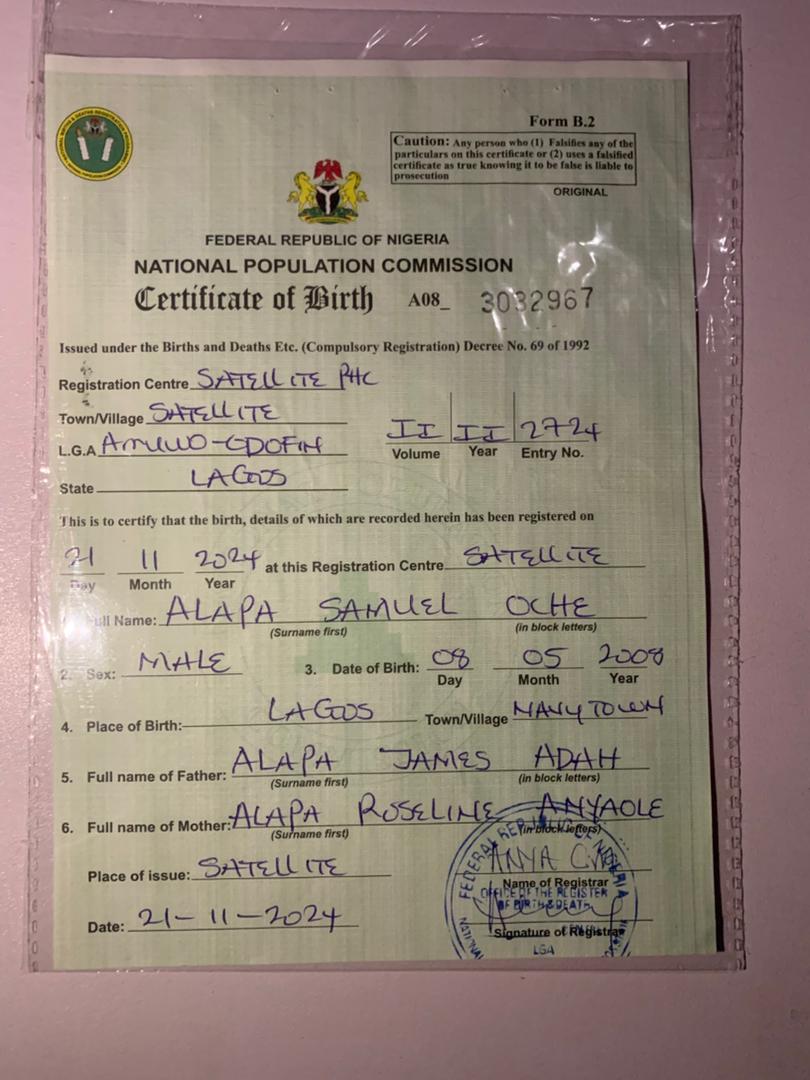 Form B.2
Caution: Any person who (1) Falsifies any of the
particulars on this certificate or (2) uses a falsified
certificate as true knowing it to be false is liable to
prosecution
ORIGINAL
FEDERAL REPUBLIC OF NIGERIA
NATIONAL POPULATION COMMISSION
Certificate of Birth A08_ 3032967
Issued under the Births and Deaths Etc. (Compulsory Registration) Decree No. 69 of 1992
Registration Centre SATELLITE PHC
Town/Village SATELLITE
L.G.A AMUWO-ODOFIN
II II 2724
Volume Year Entry No.
State LAGOS
This is to certify that the birth, details of which are recorded herein has been registered on
21 11 2024 at this Registration Centre SATELLITE
Day Month Year
Full Name: ALAPA SAMUEL OCHE
(Surname first) (in block letters)
2. Sex: MALE 3. Date of Birth: 08 05 2008
Day Month Year
4. Place of Birth: LAGOS Town/Village NAVY TOWN
5. Full name of Father: ALAPA JAMES ADAH
(Surname first) (in block letters)
6. Full name of Mother: ALAPA ROSELINE ANYAOLE
(Surname first) (in block letters)
Place of issue: SATELLITE
ANYA
Name of Registrar
OFFICE OF THE REGISTER
OF BIRTH & DEATH
Date: 21-11-2024
Signature of Registrar
LGA